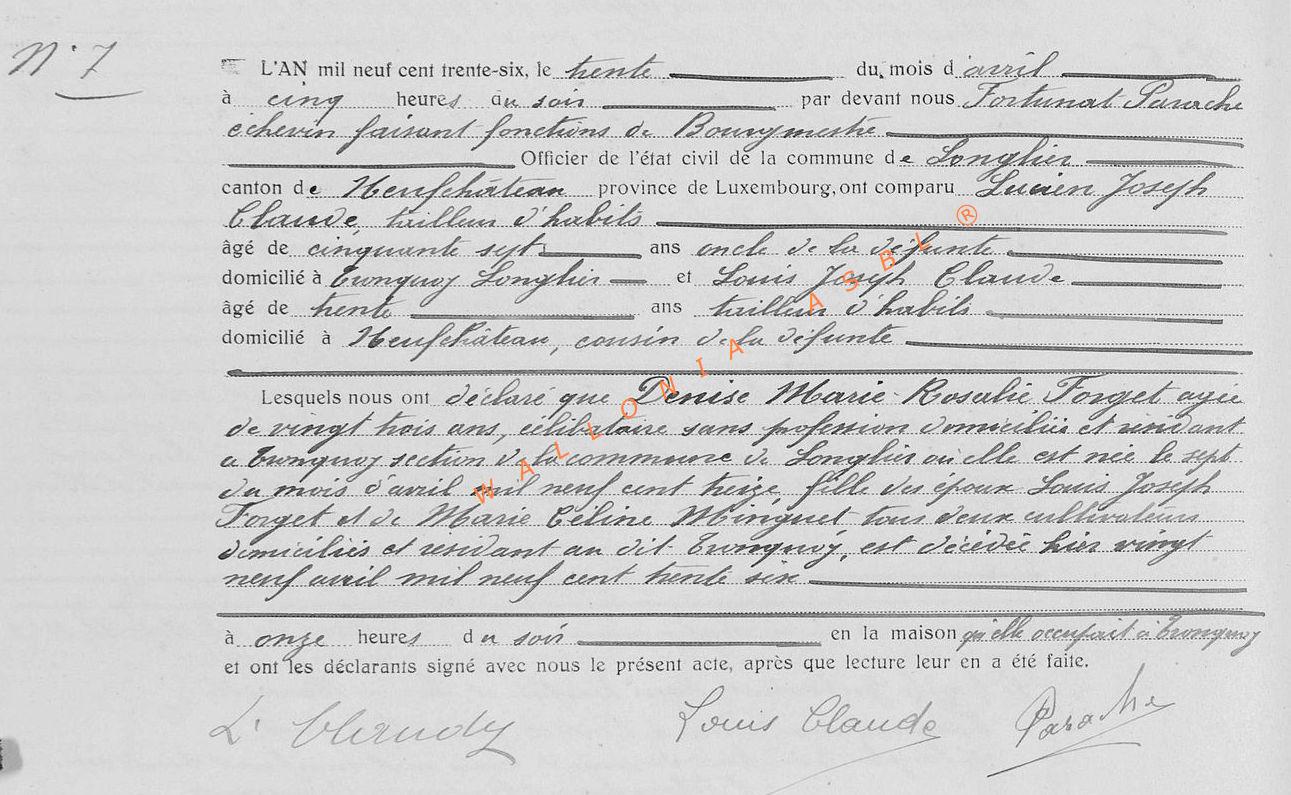 N° 7
L'AN mil neuf cent trente-six, le trente du mois d'avril
à cinq heures du soir par devant nous Fortunat Parache
échevin faisant fonctions de Bourgmestre
Officier de l'état civil de la commune de Longlier
canton de Neufchâteau province de Luxembourg, ont comparu Lucien Joseph
Claude, tailleur d'habits
âgé de cinquante sept ans oncle de la défunte
domicilié à Tronquoy Longlier et Louis Joseph Claude
âgé de trente ans tailleur d'habits
domicilié à Neufchâteau, cousin de la défunte
Lesquels nous ont déclaré que Denise Marie Rosalie Forget agée
de vingt trois ans, célibataire sans profession domiciliée et résidant
a Tronquoy section de la commune de Longlier où elle est née le sept
du mois d'avril mil neuf cent treize, fille des époux Louis Joseph
Forget et de Marie Céline Minguet tous deux cultivateurs
domiciliés et résidant au dit Tronquoy, est décédée hier vingt
neuf avril mil neuf cent trente six
à onze heures du soir en la maison qu'elle occupait à Tronquoy
et ont les déclarants signé avec nous le présent acte, après que lecture leur en a été faite.
Louis Claude Parache
WALLONIA ASBL ®